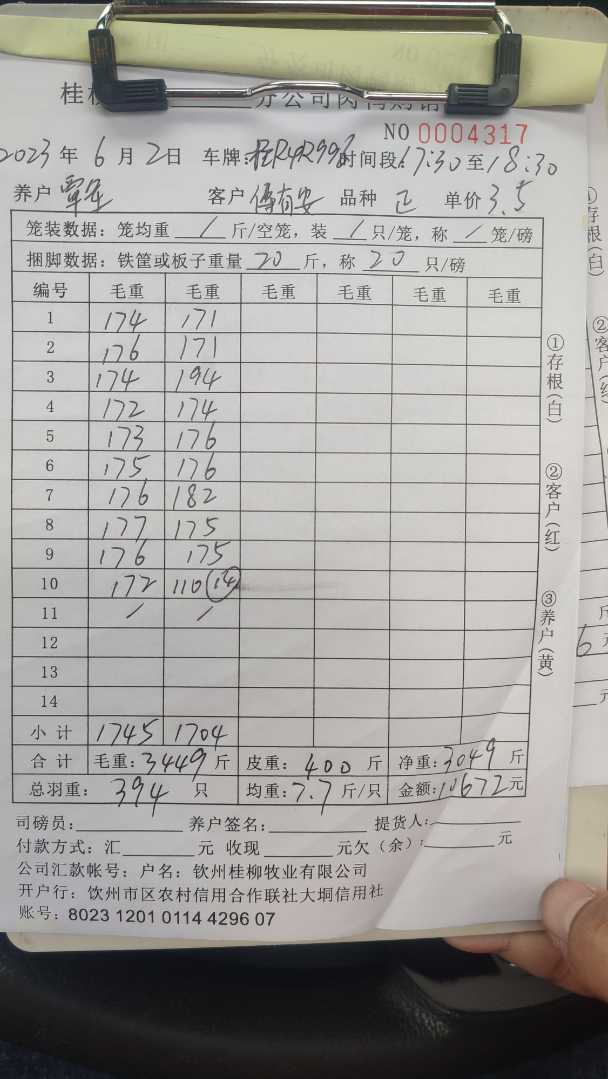 NO 0004317
2023 年 6 月 2 日 车牌: 时间段: 17:30 至 18:30
养户 客户 傅有安 品种 正 单价 3.5
笼装数据: 笼均重 / 斤/空笼, 装 / 只/笼, 称 / 笼/磅
捆脚数据: 铁筐或板子重量 20 斤, 称 20 只/磅
编号 毛重 毛重 毛重 毛重 毛重 毛重
1 174 171
2 176 171
3 174 194
4 172 174
5 173 176
6 175 176
7 176 182
8 177 175
9 176 175
10 172 110 (14)
11 / /
12
13
14
小 计 1745 1704
合 计 毛重: 3449 斤 皮重: 400 斤 净重: 3049 斤
总羽重: 394 只 均重: 7.7 斤/只 金额: 10672 元
司磅员: 养户签名: 提货人:
付款方式: 汇 元 收现 元欠 (余): 元
公司汇款帐号: 户名: 钦州桂柳牧业有限公司
开户行: 饮州市区农村信用合作联社大垌信用社
账号: 8023 1201 0114 4296 07
①存根(白)
②客户(红)
③养户(黄)